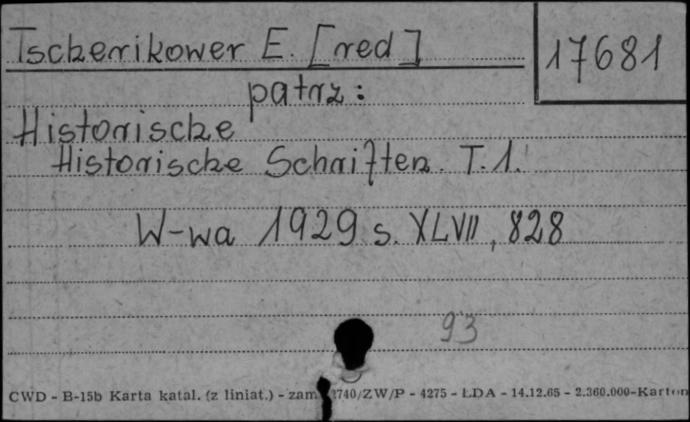 Tscherikower E. [red]
17681
patrz:
Historische
Historische Schriften. T. 1.
W-wa 1929 s. XLVII, 828
93
CWD - B-15b Karta katal. (z liniat.) - zam. 2740/ZW/P - 4275 - ŁDA - 14.12.65 - 2.360.000-Karton